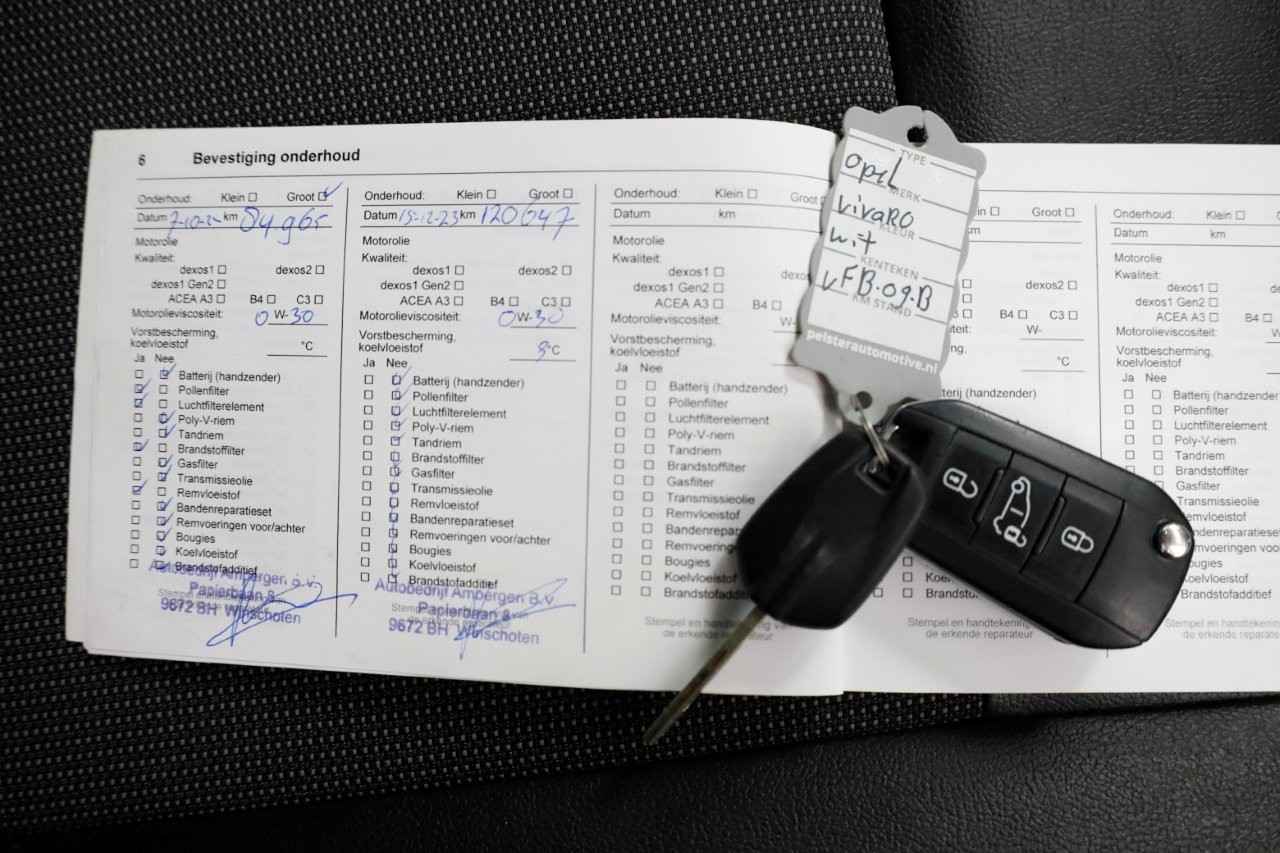 6 Bevestiging onderhoud
Onderhoud: Klein Groot
Datum km 84965
Motorolie
Kwaliteit:
dexos1 dexos2
dexos1 Gen2
ACEA A3 B4 C3
Motorolieviscositeit: 0 W-30
Vorstbescherming,
koelvloeistof °C
Ja Nee
Batterij (handzender)
Pollenfilter
Luchtfilterelement
Poly-V-riem
Tandriem
Brandstoffilter
Gasfilter
Transmissieolie
Remvloeistof
Bandenreparatieset
Remvoeringen voor/achter
Bougies
Koelvloeistof
Brandstofadditief
Autobedrijf Ampergen B.V.
Papierbaan 8
9672 BH Winschoten
Onderhoud: Klein Groot
Datum 15-12-23 km 120647
Motorolie
Kwaliteit:
dexos1 dexos2
dexos1 Gen2
ACEA A3 B4 C3
Motorolieviscositeit: 0W-30
Vorstbescherming,
koelvloeistof °C
Ja Nee
Batterij (handzender)
Pollenfilter
Luchtfilterelement
Poly-V-riem
Tandriem
Brandstoffilter
Gasfilter
Transmissieolie
Remvloeistof
Bandenreparatieset
Remvoeringen voor/achter
Bougies
Koelvloeistof
Brandstofadditief
Autobedrijf Ampergen B.V.
Papierbaan 8
9672 BH Winschoten
Onderhoud: Klein Groot
Datum km
Motorolie
Kwaliteit:
dexos1
dexos1 Gen2
ACEA A3 B4
Motorolieviscositeit: W-
Vorstbescherming,
koelvloeistof
Ja Nee
Batterij (handzender)
Pollenfilter
Luchtfilterelement
Poly-V-riem
Tandriem
Brandstoffilter
Gasfilter
Transmissieolie
Remvloeistof
Bandenrepar
Remvoering
Bougies
Koelvloeistof
Brandstofadditief
Stempel en handtekening
de erkende reparateur
TYPE
Opel
MERK
Vivaro
KLEUR
wit
KENTEKEN
VFB.09.B
KM STAND
pelsterautomotive.nl
Groot
km
dexos2
B4 C3
W-
°C
Stempel en handtekening
de erkende reparateur
Onderhoud: Klein
Datum km
Motorolie
Kwaliteit:
dexos1
dexos1 Gen2
ACEA A3 B4
Motorolieviscositeit: W-
Vorstbescherming,
koelvloeistof
Ja Nee
Batterij (handzender
Pollenfilter
Luchtfilterelement
Poly-V-riem
Tandriem
Brandstoffilter
Gasfilter
Transmissieolie
Remvloeistof
Bandenreparatieset
mvoeringen voor/a
Bougies
Koelvloeistof
Brandstofadditief
Stempel en handtekening
de erkende reparateur